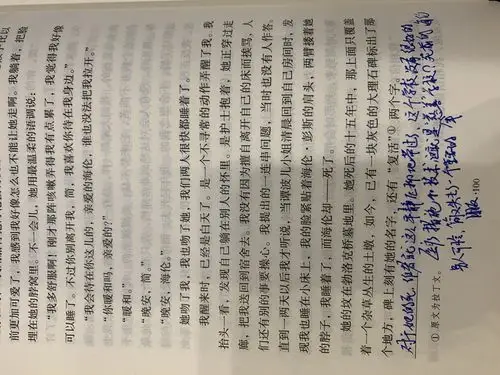 前更加可爱了，我感到我好像怎么也不能让她走啊。我躺着，把脸
埋在她的脖窝里。不一会儿，她用最温柔的语调说：
“我多舒服啊！刚才那阵咳嗽弄得我有点累了，我觉得我好像
可以睡了。不过你别离开我，简，我喜欢你待在我身边。”
“我会待在你这儿的，亲爱的海伦，谁也没法把我拉开。”
“你暖和吗，亲爱的？”
“暖和。”
“晚安，简。”
“晚安，海伦。”
她吻了我，我也吻了她，我们两人很快都睡着了。
我醒来时，已经是白天了。是一个不寻常的动作弄醒了我。我
抬头一看，发现自己躺在别人的怀里。是护士抱着，她正穿过走
廊，把我送回宿舍去。我没有因为擅自离开自己的床而挨骂，人
们还有别的事要操心。我提出的一连串问题，当时也没有人作答，
直到一两天以后我才听说，当谭波儿小姐清晨回到自己房间时，发
现我也睡在小床上，我的脸紧贴着海伦·彭斯的肩头，两臂搂着她
的脖子，我睡着了，而海伦却——死了。
她的坟在勃洛克桥墓地里。她死后的十五年中，那上面只覆盖
着一个杂草丛生的土墩，如今，已有一块灰色的大理石碑标出了那
个地方，碑上刻有她的名字，还有“复活①”两个字。
对于她的死，作者就这么平静地带过，这个学校
① 原文为拉丁文。
·100·